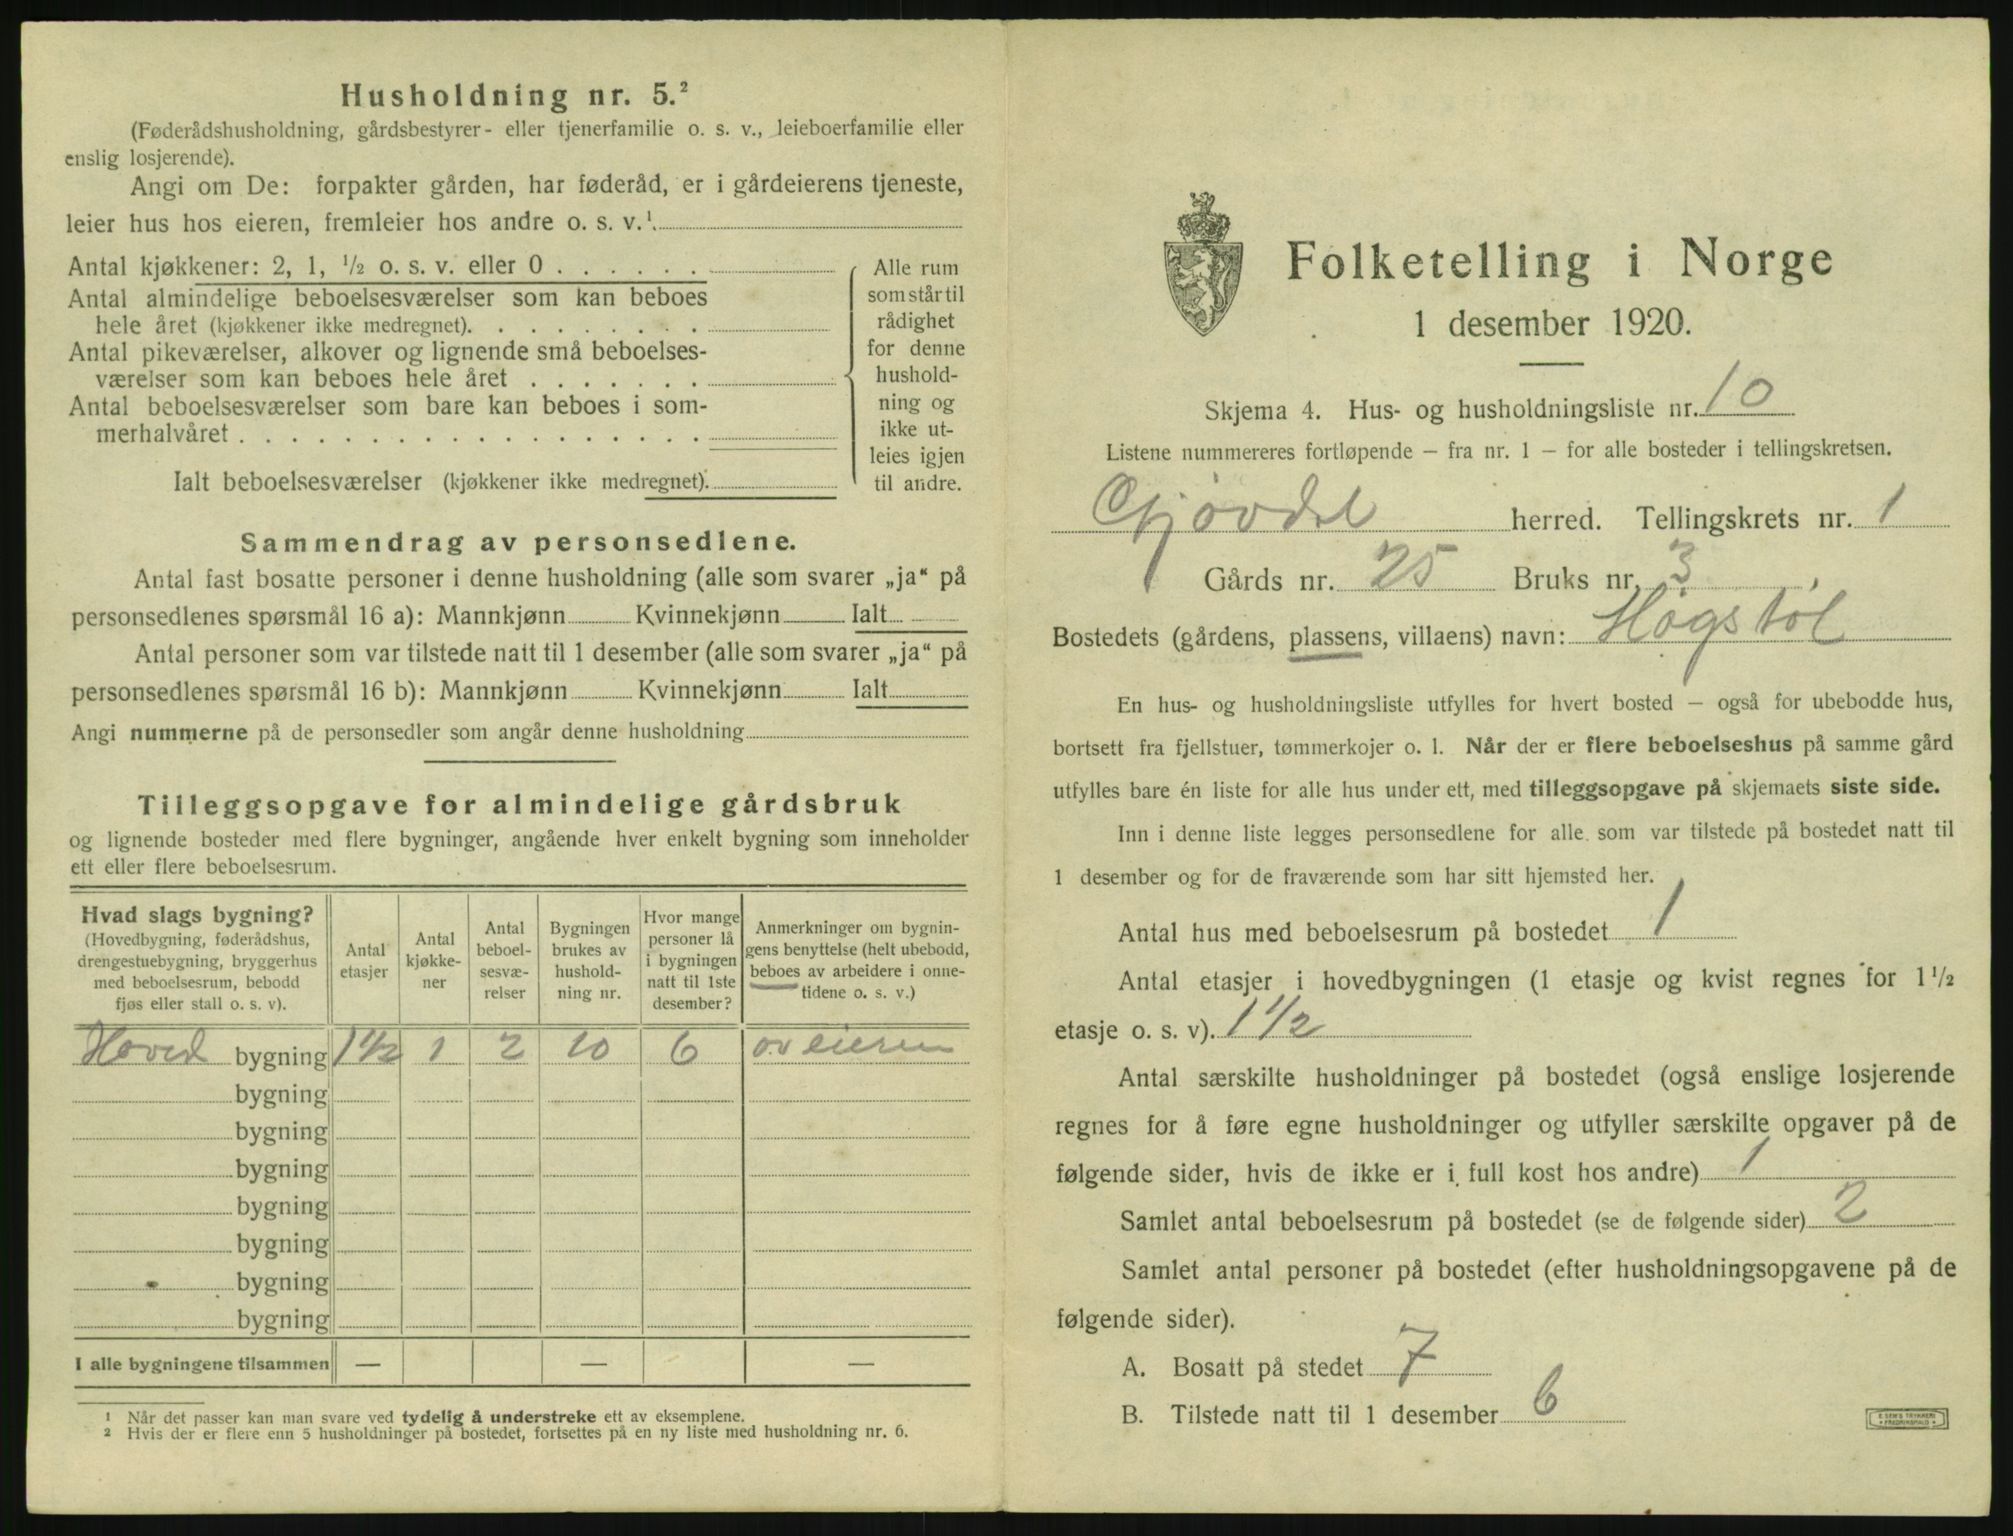 Husholdning nr. 5.²
(Føderådshusholdning, gårdsbestyrer- eller tjenerfamilie o. s. v., leieboerfamilie eller
enslig losjerende).
Angi om De: forpakter gården, har føderåd, er i gårdeierens tjeneste,
leier hus hos eieren, fremleier hos andre o. s. v.¹
Antal kjøkkener: 2, 1, ½ o. s. v. eller 0 . . . . . .
Antal almindelige beboelsesværelser som kan beboes
hele året (kjøkkener ikke medregnet). . . . . . . . .
Antal pikeværelser, alkover og lignende små beboelses-
værelser som kan beboes hele året . . . . . . .
Antal beboelsesværelser som bare kan beboes i som-
merhalvåret . . . . . . . . . . . . . . . . . .
Ialt beboelsesværelser (kjøkkener ikke medregnet).
Alle rum
som står til
rådighet
for denne
hushold-
ning og
ikke ut-
leies igjen
til andre.
Sammendrag av personsedlene.
Antal fast bosatte personer i denne husholdning (alle som svarer „ja“ på
personsedlenes spørsmål 16 a): Mannkjønn Kvinnekjønn Ialt
Antal personer som var tilstede natt til 1 desember (alle som svarer „ja“ på
personsedlenes spørsmål 16 b): Mannkjønn Kvinnekjønn Ialt
Angi nummerne på de personsedler som angår denne husholdning
Tilleggsopgave for almindelige gårdsbruk
og lignende bosteder med flere bygninger, angående hver enkelt bygning som inneholder
ett eller flere beboelsesrum.
Hvad slags bygning?
(Hovedbygning, føderådshus,
drengestuebygning, bryggerhus
med beboelsesrum, bebodd
fjøs eller stall o. s. v).
Antal
etasjer
Antal
kjøkke-
ner
Antal
beboel-
sesvæ-
relser
Bygningen
brukes av
hushold-
ning nr.
Hvor mange
personer lå
i bygningen
natt til 1ste
desember?
Anmerkninger om bygnin-
gens benyttelse (helt ubebodd,
beboes av arbeidere i onne-
tidene o. s. v.)
Hoved bygning 1½ 1 2 10 6 av eieren
bygning
bygning
bygning
bygning
bygning
bygning
bygning
I alle bygningene tilsammen — — —
¹ Når det passer kan man svare ved tydelig å understreke ett av eksemplene.
² Hvis der er flere enn 5 husholdninger på bostedet, fortsettes på en ny liste med husholdning nr. 6.
Folketelling i Norge
1 desember 1920.
Skjema 4. Hus- og husholdningsliste nr. 10
Listene nummereres fortløpende — fra nr. 1 — for alle bosteder i tellingskretsen.
Gjøvdal herred. Tellingskrets nr. 1
Gårds nr. 25 Bruks nr. 3
Bostedets (gårdens, plassens, villaens) navn: Høgstøl
En hus- og husholdningsliste utfylles for hvert bosted — også for ubebodde hus,
bortsett fra fjellstuer, tømmerkojer o. l. Når der er flere beboelseshus på samme gård
utfylles bare én liste for alle hus under ett, med tilleggsopgave på skjemaets siste side.
Inn i denne liste legges personsedlene for alle som var tilstede på bostedet natt til
1 desember og for de fraværende som har sitt hjemsted her.
Antal hus med beboelsesrum på bostedet 1
Antal etasjer i hovedbygningen (1 etasje og kvist regnes for 1½
etasje o. s. v). 1½
Antal særskilte husholdninger på bostedet (også enslige losjerende
regnes for å føre egne husholdninger og utfyller særskilte opgaver på de
følgende sider, hvis de ikke er i full kost hos andre) 1
Samlet antal beboelsesrum på bostedet (se de følgende sider) 2
Samlet antal personer på bostedet (efter husholdningsopgavene på de
følgende sider).
A. Bosatt på stedet 7
B. Tilstede natt til 1 desember 6
E. SEM'S TRYKKERI
FREDRIKSHALD